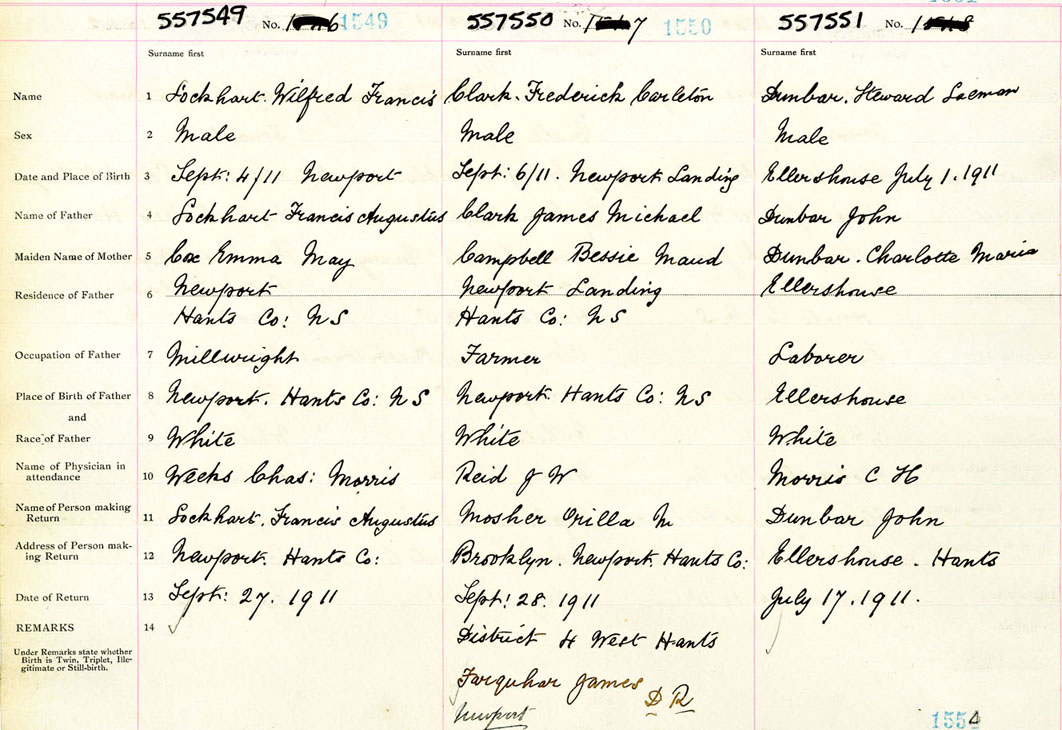 557549 No. 1549 557550 No. 1550 557551 No.
Surname first Surname first Surname first
Name 1 Lockhart. Wilfred Francis Clark. Frederick Carleton Dunbar. Steward
Sex 2 Male Male Male
Date and Place of Birth 3 Sept: 4/11 Newport Sept: 6/11. Newport Landing Ellershouse July 1. 1911
Name of Father 4 Lockhart Francis Augustus Clark James Michael Dunbar John
Maiden Name of Mother 5 Cox Emma May Campbell Bessie Maud Dunbar. Charlotte Maria
Residence of Father 6 Newport Newport Landing Ellershouse
Hants Co: NS Hants Co: NS
Occupation of Father 7 Millwright Farmer Laborer
Place of Birth of Father 8 Newport. Hants Co: NS Newport. Hants Co: NS Ellershouse
and
Race of Father 9 White White White
Name of Physician in
attendance 10 Weeks Chas: Morris Reid J W Morris C H
Name of Person making
Return 11 Lockhart. Francis Augustus Mosher Orilla M Dunbar John
Address of Person mak-
ing Return 12 Newport. Hants Co: Brooklyn. Newport. Hants Co: Ellershouse. Hants
Date of Return 13 Sept: 27. 1911 Sept: 28. 1911 July 17. 1911.
REMARKS 14 District 4 West Hants
Under Remarks state whether
Birth is Twin, Triplet, Ille-
gitimate or Still-birth.
Farquhar James D R
Newport
1554